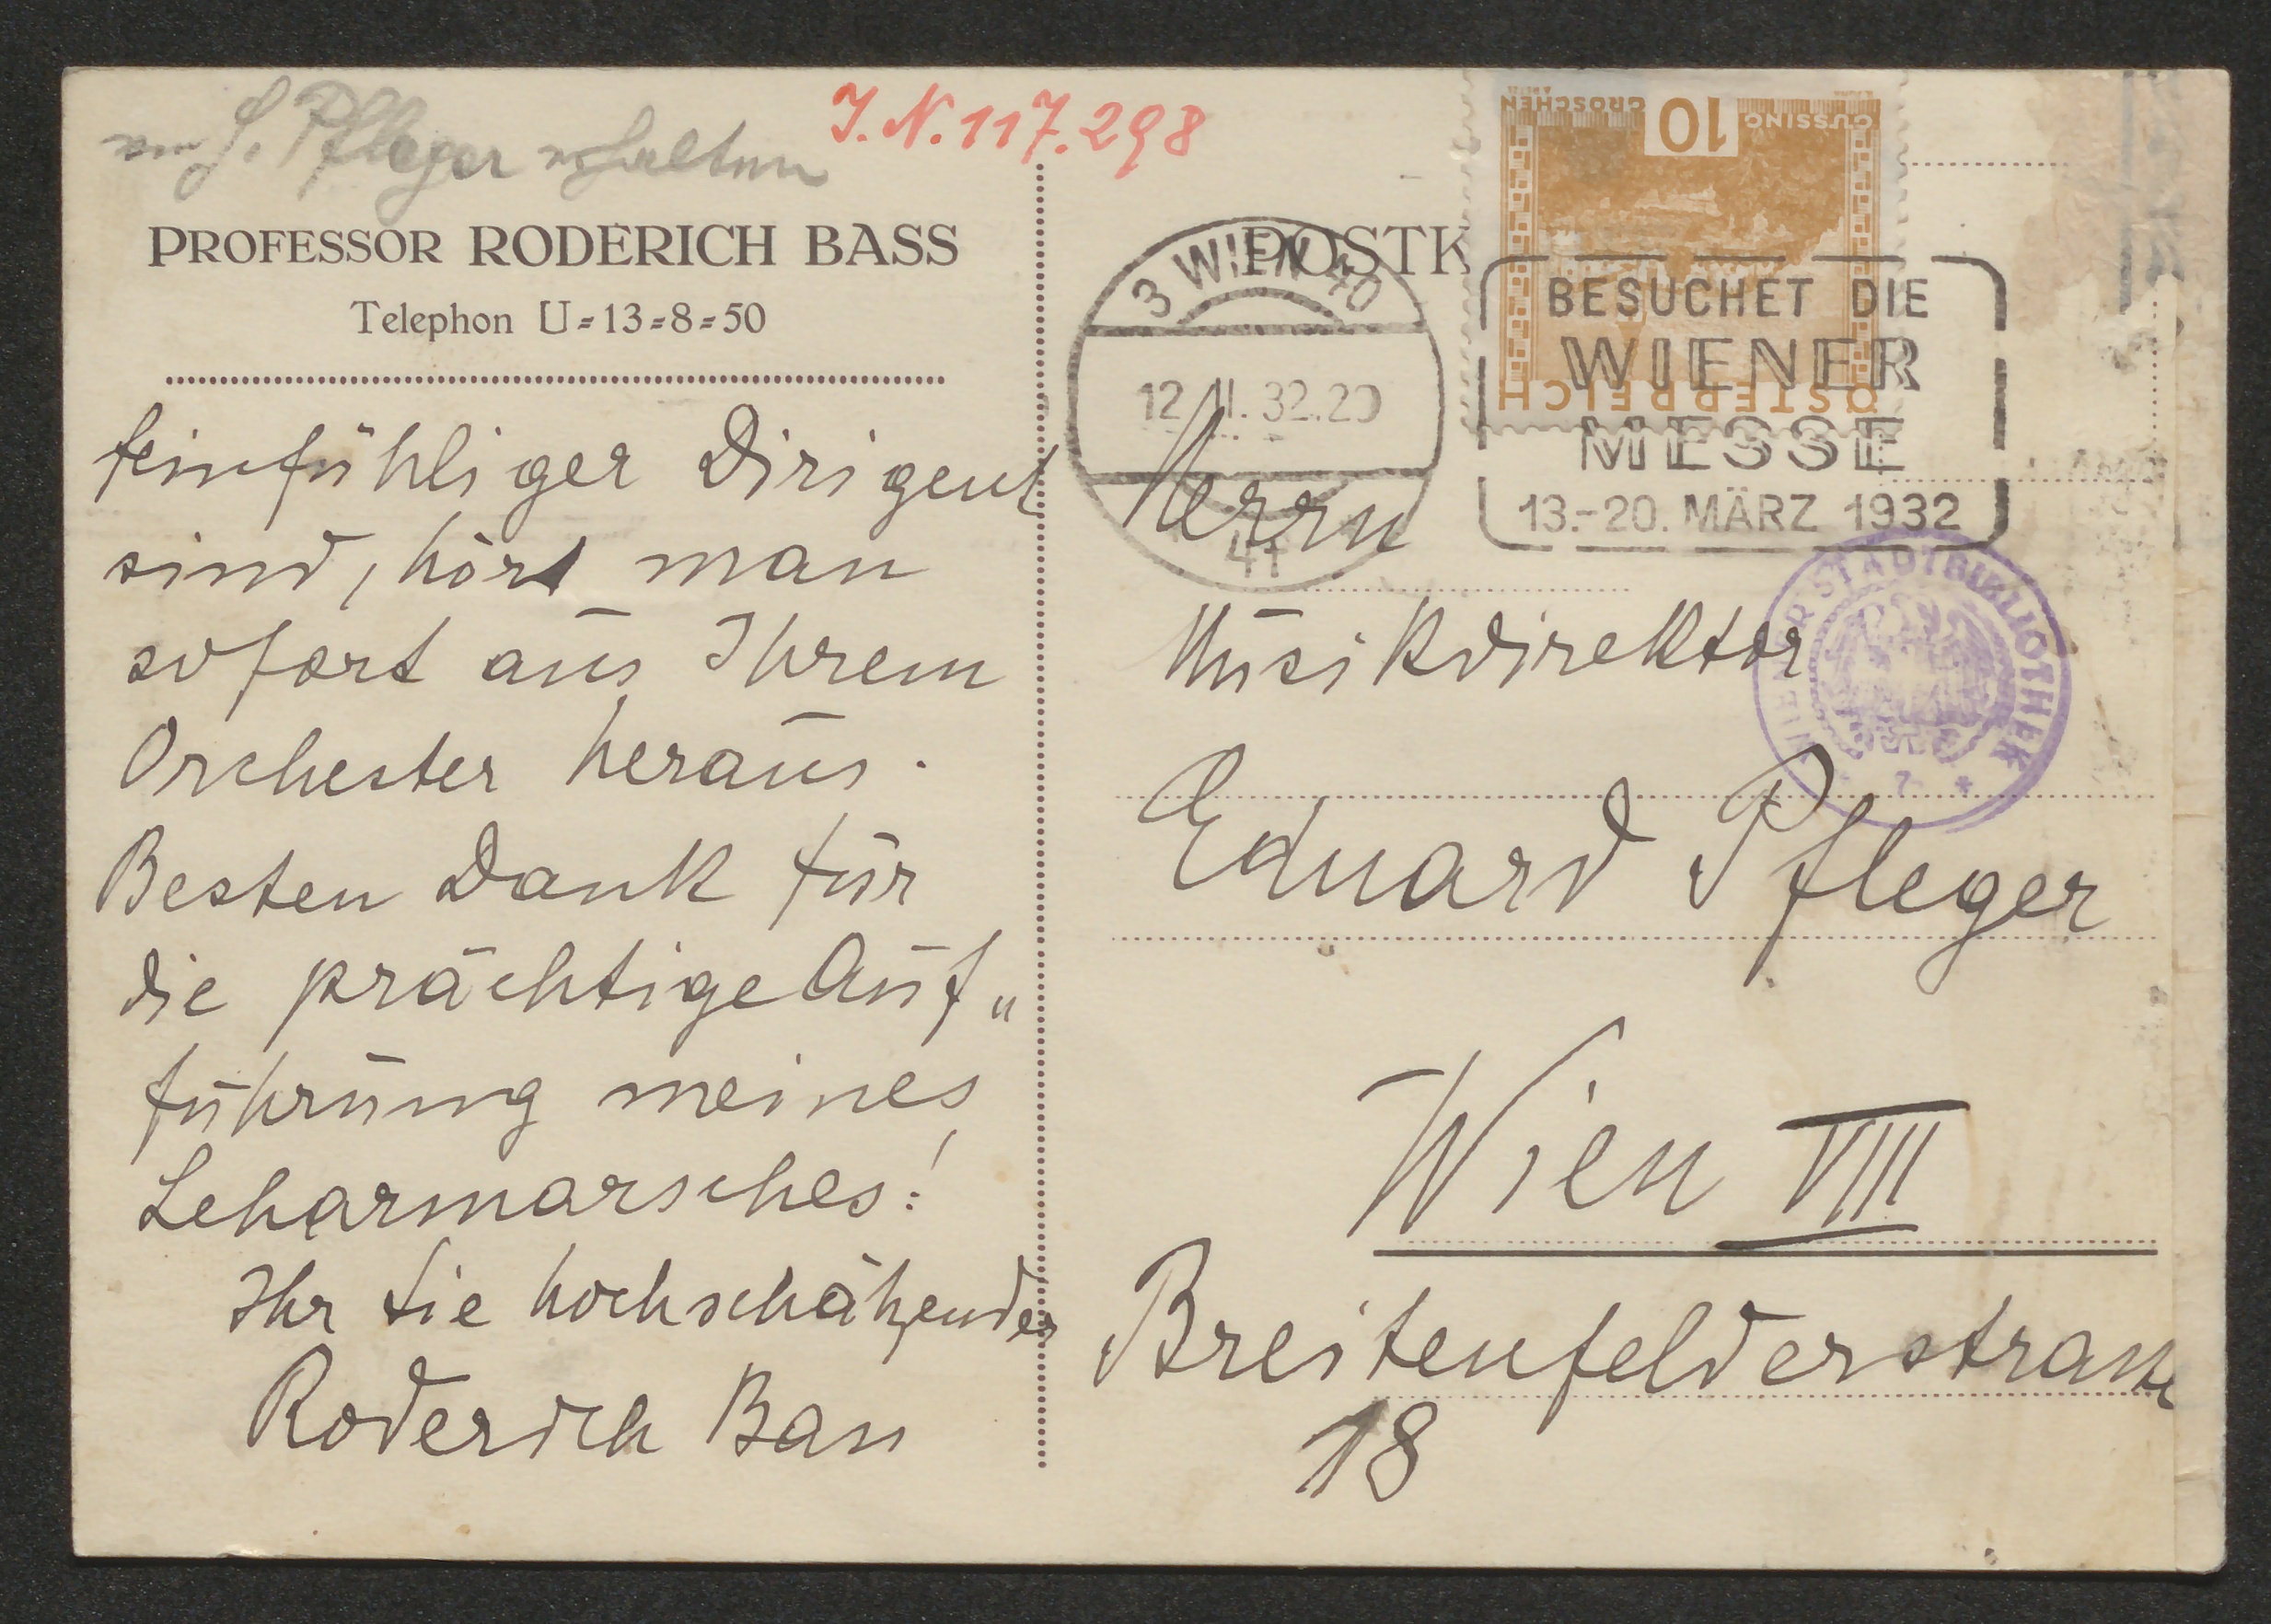 von H. Pfleger erhalten
J.N. 117.298
PROFESSOR RODERICH BASS
Telephon U=13=8=50
feinfühliger Dirigent
sind, hört man
sofort aus Ihrem
Orchester heraus.
Besten Dank für
die prächtige Auf„
führung meines
Leharmarsches!
Ihr Sie hochschätzender
Roderich Bass
POSTK
GÜSSING 10 GROSCHEN
ÖSTERREICH
3 WIEN 40
12.II.32.20
41
BESUCHET DIE
WIENER
MESSE
13.-20. MÄRZ 1932
WIENER STADTBIBLIOTHEK
* 7 *
Herrn
Musikdirektor
Eduard Pfleger
Wien VIII
Breitenfelderstrasse
18